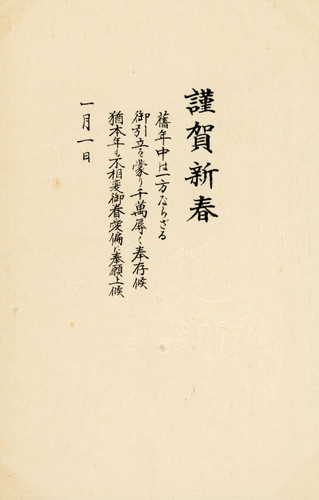 謹賀新春
舊年中は一方ならざる
御引立を蒙り千萬辱く奉存候
猶本年も不相變御眷愛偏に奉願上候
一月一日